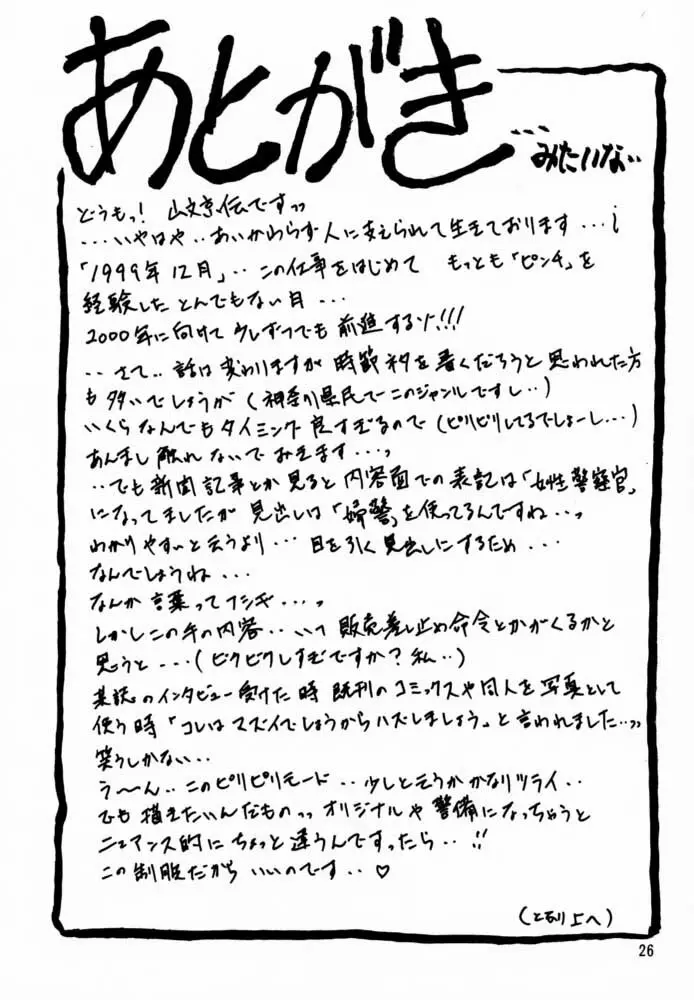 あとがき
...みたいな..
どうもっ! 山文京伝ですっっ
...いやはや..あいかわらず人に支えられて生きております...
「1999年12月」..この仕事をはじめて もっとも「ピンチ」を
経験したとんでもない月...
2000年に向けて少しずつでも前進するゾ!!!
..さて..話は変わりますが時節ネタを書くだろうと思われた方
も多いでしょうが(神奈川県民でこのジャンルですし..)
いくらなんでもタイミング良すぎるので(ピリピリしてるでしょーし...)
あんまし触れないでおきます...っ
..でも新聞記事とか見ると内容面での表記は「女性警察官」
になってましたが見出しは「婦警」を使ってるんですね..っ
わかりやすいと云うより...目を引く見出しにするため...
なんでしょうね...
なんか言葉ってフシギ...っ
しかしこの手の内容..いつ販売差し止め命令とかがくるかと
思うと...(ビクビクしすぎですか?私..)
某誌のインタビュー受けた時既刊のコミックスや同人を写真として
使う時「コレはマズイでしょうからハズしましょう」と言われました..っっ
笑うしかない..
う〜ん..このピリピリモード..少しと云うかかなりツライ..
でも描きたいんだものっっオリジナルや警備になっちゃうと
ニュアンス的にちょっと違うんですったら..!!
この制服だから いいのです..♡
(となり上へ)
26